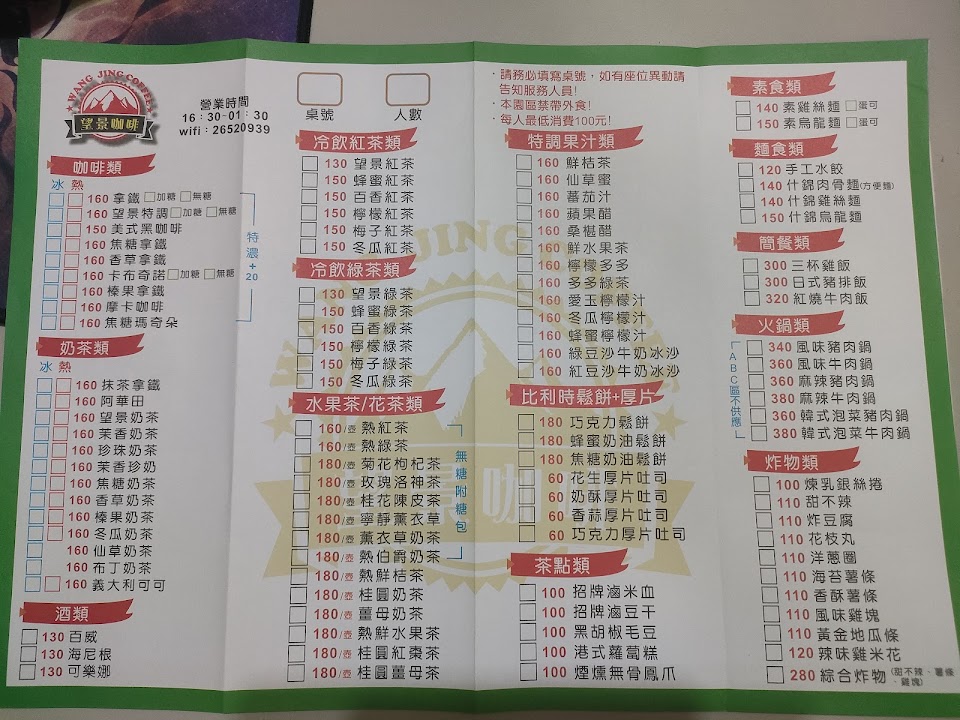 WANG JING COFFEE
望景咖啡
營業時間
16：30-01：30
wifi：26520939
咖啡類
冰 熱
160 拿鐵 加糖 無糖
160 望景特調 加糖 無糖
150 美式黑咖啡
160 焦糖拿鐵
160 香草拿鐵
160 卡布奇諾 加糖 無糖
160 榛果拿鐵
160 摩卡咖啡
160 焦糖瑪奇朵
特濃+20
奶茶類
冰 熱
160 抹茶拿鐵
160 阿華田
160 望景奶茶
160 茉香奶茶
160 珍珠奶茶
160 茉香珍奶
160 焦糖奶茶
160 香草奶茶
160 榛果奶茶
160 冬瓜奶茶
160 仙草奶茶
160 布丁奶茶
160 義大利可可
酒類
130 百威
130 海尼根
130 可樂娜
桌號 人數
冷飲紅茶類
130 望景紅茶
150 蜂蜜紅茶
150 百香紅茶
150 檸檬紅茶
150 梅子紅茶
150 冬瓜紅茶
冷飲綠茶類
130 望景綠茶
150 蜂蜜綠茶
150 百香綠茶
150 檸檬綠茶
150 梅子綠茶
150 冬瓜綠茶
水果茶/花茶類
160/壺 熱紅茶
160/壺 熱綠茶
180/壺 菊花枸杞茶
180/壺 玫瑰洛神茶
180/壺 桂花陳皮茶
180/壺 寧靜薰衣草
180/壺 薰衣草奶茶
180/壺 熱伯爵奶茶
180/壺 熱鮮桔茶
180/壺 桂圓奶茶
180/壺 薑母奶茶
180/壺 熱鮮水果茶
180/壺 桂圓紅棗茶
180/壺 桂圓薑母茶
無糖附糖包
·請務必填寫桌號，如有座位異動請
告知服務人員!
·本園區禁帶外食!
·每人最低消費100元!
特調果汁類
160 鮮桔茶
160 仙草蜜
160 蕃茄汁
160 蘋果醋
160 桑椹醋
160 鮮水果茶
160 檸檬多多
160 多多綠茶
160 愛玉檸檬汁
160 冬瓜檸檬汁
160 蜂蜜檸檬汁
160 綠豆沙牛奶冰沙
160 紅豆沙牛奶冰沙
比利時鬆餅+厚片
180 巧克力鬆餅
180 蜂蜜奶油鬆餅
180 焦糖奶油鬆餅
60 花生厚片吐司
60 奶酥厚片吐司
60 香蒜厚片吐司
60 巧克力厚片吐司
茶點類
100 招牌滷米血
100 招牌滷豆干
100 黑胡椒毛豆
100 港式蘿蔔糕
100 煙燻無骨鳳爪
素食類
140 素雞絲麵 蛋可
150 素烏龍麵 蛋可
麵食類
120 手工水餃
140 什錦肉骨麵(方便麵)
140 什錦雞絲麵
150 什錦烏龍麵
簡餐類
300 三杯雞飯
300 日式豬排飯
320 紅燒牛肉飯
火鍋類
340 風味豬肉鍋
360 風味牛肉鍋
360 麻辣豬肉鍋
380 麻辣牛肉鍋
360 韓式泡菜豬肉鍋
380 韓式泡菜牛肉鍋
ABC區不供應
炸物類
100 煉乳銀絲捲
110 甜不辣
110 炸豆腐
110 花枝丸
110 洋蔥圈
110 海苔薯條
110 香酥薯條
110 風味雞塊
110 黃金地瓜條
120 辣味雞米花
280 綜合炸物(甜不辣、薯條、雞塊)